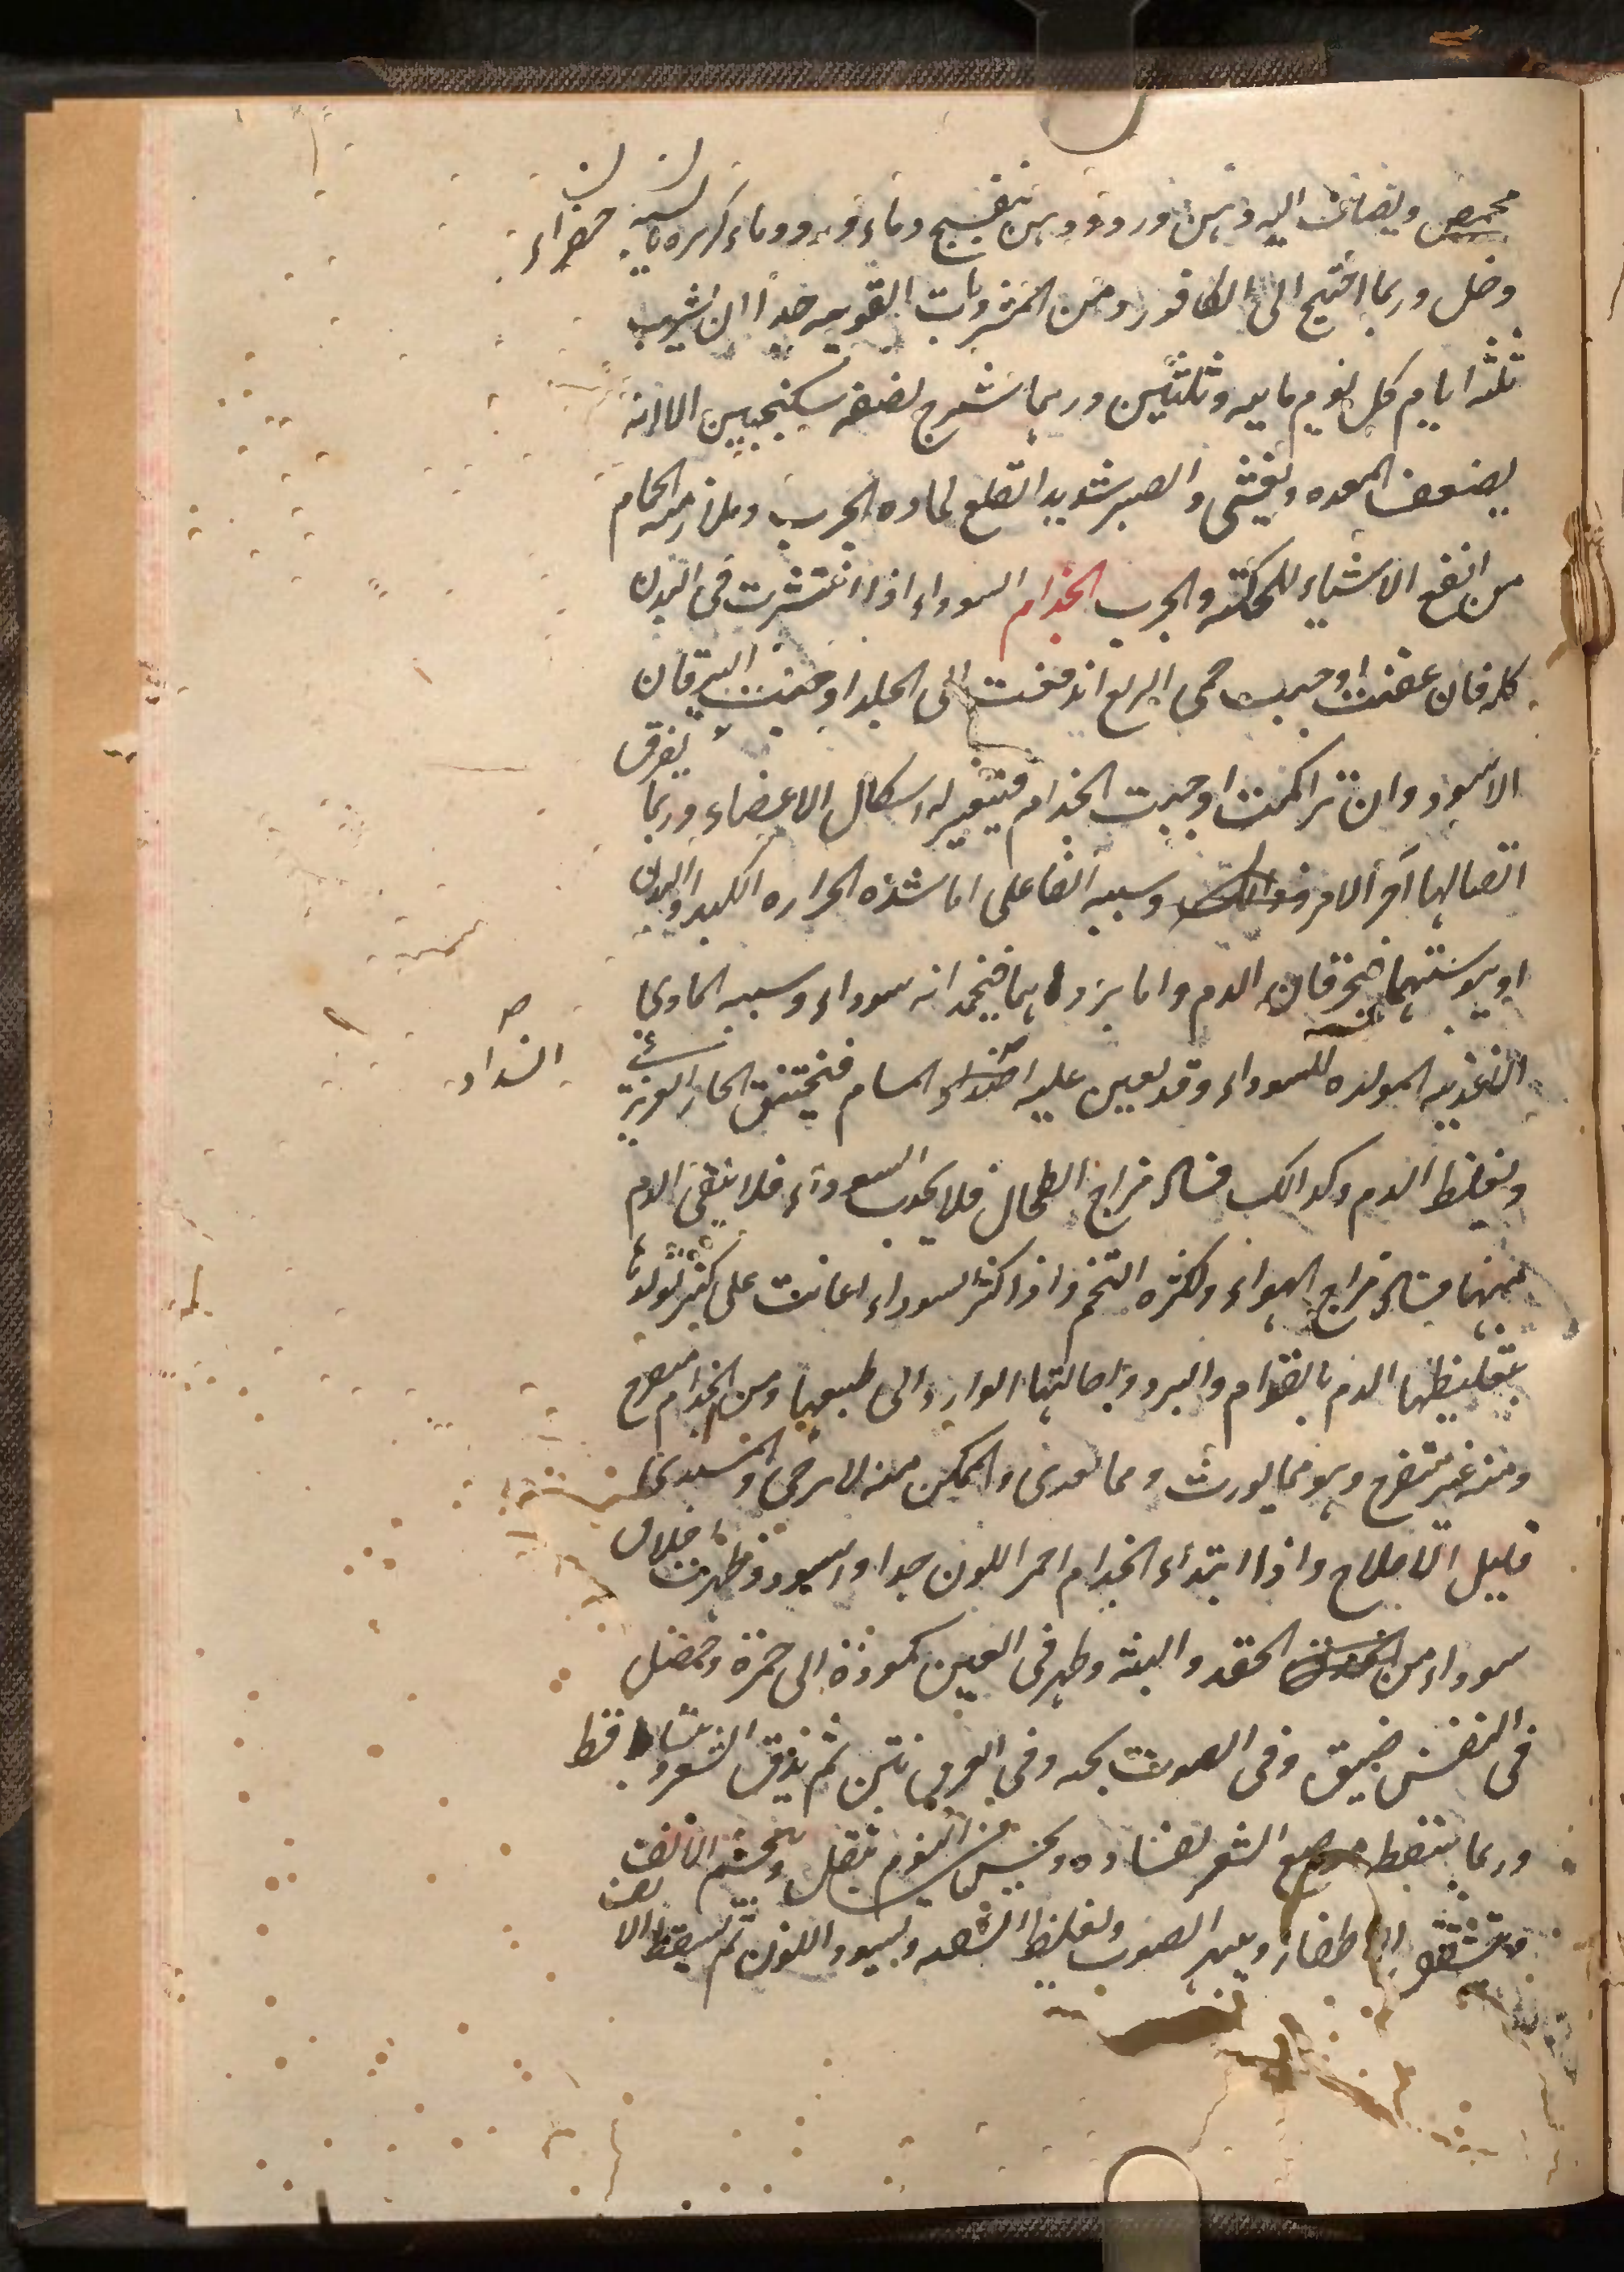 محمص ويضاف اليه دهن ورد ودهن بنفسج وماء ورد وماء كزبره يابسه خضراء
وخل وربما احتيج الى الكافور ومن المشروبات القويه جداً ان يشرب
ثلثه ايام كل يوم مايه وثلثين وربما شرج نصفه سكنجبين الا انه
يضعف المعده ويغشى والصبر شديد القلع لماده الجرب وملازمه الحمام
من انفع الاشياء للحكة والجرب الجذام السوداء اذا انتشرت فى البدن
كله فان عفنت اوجبت حمى الربع اندفعت الى الجلد اوجبت اليرقان
الاسود وان تراكمت اوجبت الجذام فيتغير له اشكال الاعضاء وربما تفرق
اتصالها آخر الامر وسببه الفاعلى اما شده الحراره الكبد او البدن
او يبوستهما فيحرقان الدم واما بردهما فيجمد انه سوداء وسببه المادى
الاغذيه المولده للسوداء وقد يعين عليه المسام فيختنق الحار الغريزى
انسداد صح
ويغلظ الدم وكذالك فساد مزاج الطحال فلا يجذب السوداء فلا ينقى الدم
منها فساد مزاج الهواء ولكثره التخم واذا كثر السوداء اعانت على كثر تولدها
بتغليظها الدم بالقوام والبرد وباحالتها الوارد الى طبعها ومن الجذام متقرح
ومنه غير متقرح وهو مما يورث ومما يعدى والممكن منه لا يرجى والمبتدى
قليل الاصلاح واذا ابتداء الجذام احمر اللون جدا واسود وظهرت اخلاق
سوداء من الحقد والتيه وظهر فى العين كمودة الى حمرة وحصل
فى النفس ضيق وفى الصوت بحه وفى العرق نتن ثم يدق الشعر وتساقط
وربما سقط موضع الشعر لفساده ويحس فى النوم بثقل ويخشم الانف
وتتشقق الاظفار ويبح الصوت ويغلظ الشفه ويسود اللون ثم يسقط الانف